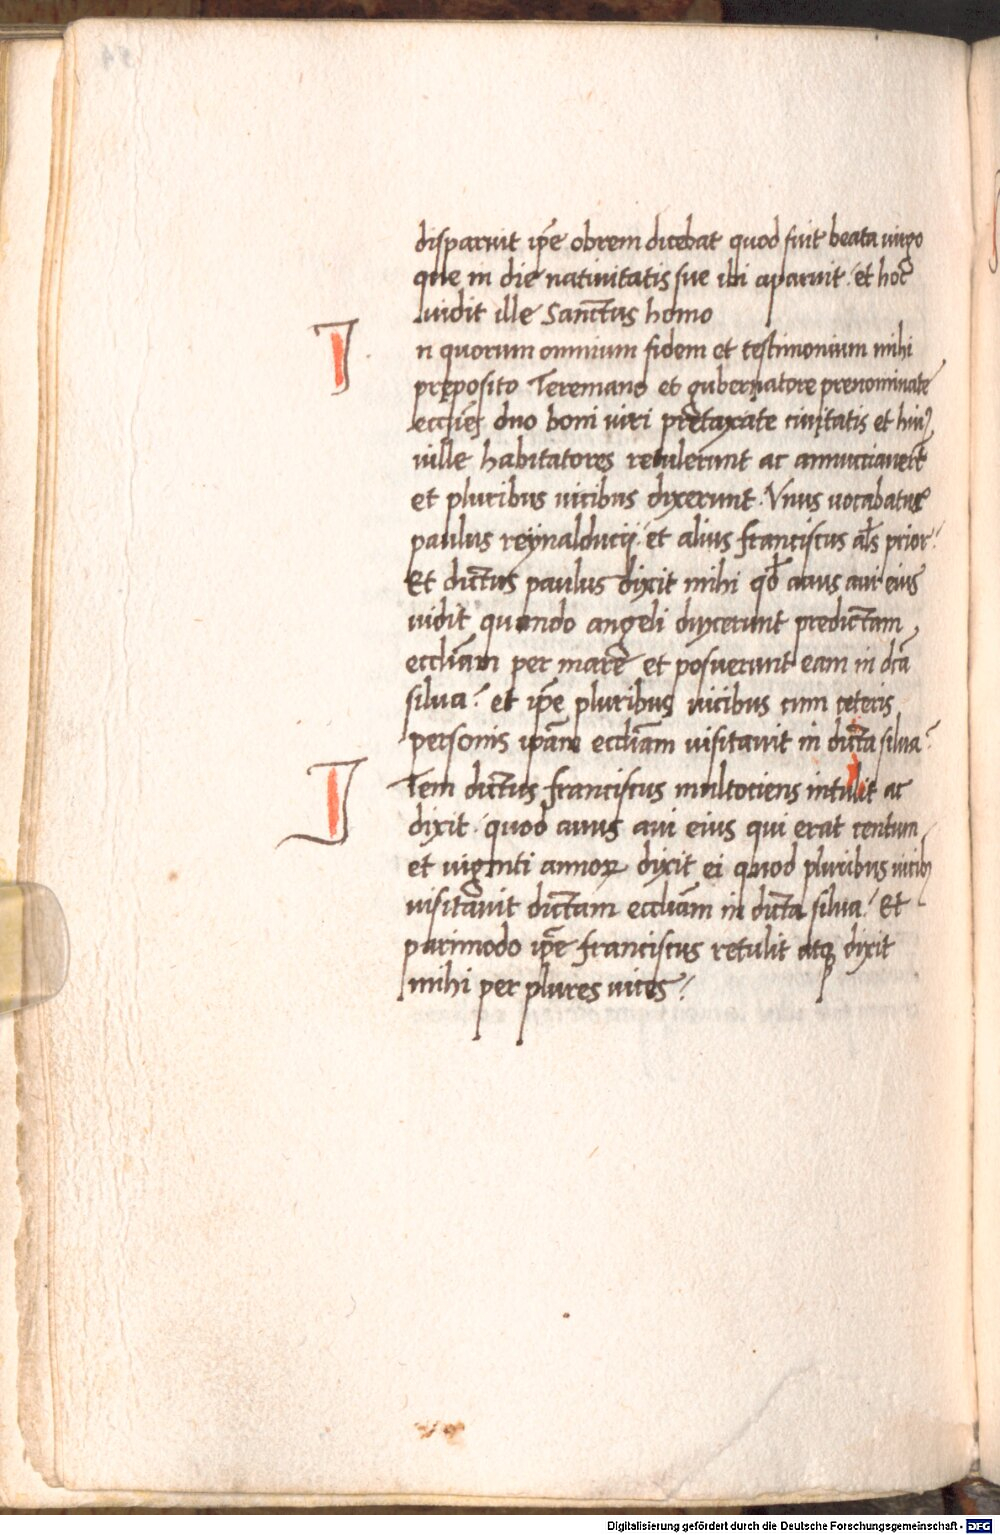 disparuit ip̄e obrem dicebat quod fuit beata uirgo
que in die natiuitatis sue ibi aparuit · et hoc
uidit ille Sanctus homo
I n quorum omnium fidem et testimonium mihi
pręposito Teremano et gubernatore prenominate
eccƚiēs duo boni uiri pretaxate ciuitatis et huiꝰ
uille habitatores retulerunt ac annuctiauerūt
et pluribus uicibus dixerunt · Vnus uocabatur
paulus reÿnalducij · et alius franciscus aƚs prior ·
Et dictus paulus dixit mihi qđ auus aui eius
uidit quando angeli duxcerunt predictam
eccliam per mare et posuerunt eam in dcā
silua · et ip̄e pluribus uicibus cum ceteris
personis ipām eccliam uisitauit in dicta silua ·
I Tem dictus franciscus multociens intulit ac
dixit · quod auus aui eius qui erat centum
et viginti annoꝝ dixit ei quod pluribus uicibꝰ
uisitauit dictam eccliam in dicta silua · Et
parimodo ip̄e franciscus retulit atqꝫ dixit
mihi per plures uices ·
Digitalisierung gefördert durch die Deutsche Forschungsgemeinschaft - DFG